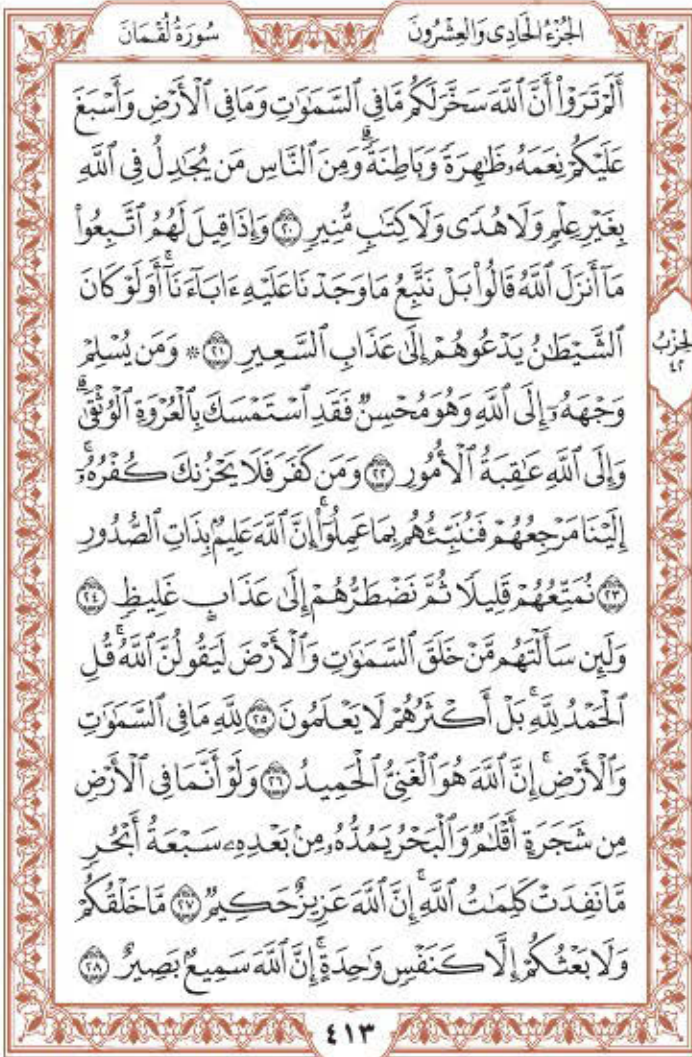 سُورَةُ لُقْمَانَ
الجُزْءُ الحَادِى وَالعِشْرُونَ
أَلَمْ تَرَوْا۟ أَنَّ ٱللَّهَ سَخَّرَ لَكُم مَّا فِى ٱلسَّمَٰوَٰتِ وَمَا فِى ٱلْأَرْضِ وَأَسْبَغَ
عَلَيْكُمْ نِعَمَهُۥ ظَٰهِرَةً وَبَاطِنَةً ۗ وَمِنَ ٱلنَّاسِ مَن يُجَٰدِلُ فِى ٱللَّهِ
بِغَيْرِ عِلْمٍ وَلَا هُدًى وَلَا كِتَٰبٍ مُّنِيرٍ ٢٠ وَإِذَا قِيلَ لَهُمُ ٱتَّبِعُوا۟
مَآ أَنزَلَ ٱللَّهُ قَالُوا۟ بَلْ نَتَّبِعُ مَا وَجَدْنَا عَلَيْهِ ءَابَآءَنَآ ۚ أَوَلَوْ كَانَ
ٱلشَّيْطَٰنُ يَدْعُوهُمْ إِلَىٰ عَذَابِ ٱلسَّعِيرِ ٢١ ۞ وَمَن يُسْلِمْ
وَجْهَهُۥٓ إِلَى ٱللَّهِ وَهُوَ مُحْسِنٌ فَقَدِ ٱسْتَمْسَكَ بِٱلْعُرْوَةِ ٱلْوُثْقَىٰ ۗ
وَإِلَى ٱللَّهِ عَٰقِبَةُ ٱلْأُمُورِ ٢٢ وَمَن كَفَرَ فَلَا يَحْزُنكَ كُفْرُهُۥٓ ۚ
إِلَيْنَا مَرْجِعُهُمْ فَنُنَبِّئُهُم بِمَا عَمِلُوٓا۟ ۚ إِنَّ ٱللَّهَ عَلِيمٌۢ بِذَاتِ ٱلصُّدُورِ
٢٣ نُمَتِّعُهُمْ قَلِيلًا ثُمَّ نَضْطَرُّهُمْ إِلَىٰ عَذَابٍ غَلِيظٍ ٢٤
وَلَئِن سَأَلْتَهُم مَّنْ خَلَقَ ٱلسَّمَٰوَٰتِ وَٱلْأَرْضَ لَيَقُولُنَّ ٱللَّهُ ۚ قُلِ
ٱلْحَمْدُ لِلَّهِ ۚ بَلْ أَكْثَرُهُمْ لَا يَعْلَمُونَ ٢٥ لِلَّهِ مَا فِى ٱلسَّمَٰوَٰتِ
وَٱلْأَرْضِ ۚ إِنَّ ٱللَّهَ هُوَ ٱلْغَنِىُّ ٱلْحَمِيدُ ٢٦ وَلَوْ أَنَّمَا فِى ٱلْأَرْضِ
مِن شَجَرَةٍ أَقْلَٰمٌ وَٱلْبَحْرُ يَمُدُّهُۥ مِنۢ بَعْدِهِۦ سَبْعَةُ أَبْحُرٍ
مَّا نَفِدَتْ كَلِمَٰتُ ٱللَّهِ ۗ إِنَّ ٱللَّهَ عَزِيزٌ حَكِيمٌ ٢٧ مَّا خَلْقُكُمْ
وَلَا بَعْثُكُمْ إِلَّا كَنَفْسٍ وَٰحِدَةٍ ۗ إِنَّ ٱللَّهَ سَمِيعٌۢ بَصِيرٌ ٢٨
الحِزْبُ
٤٢
٤١٣